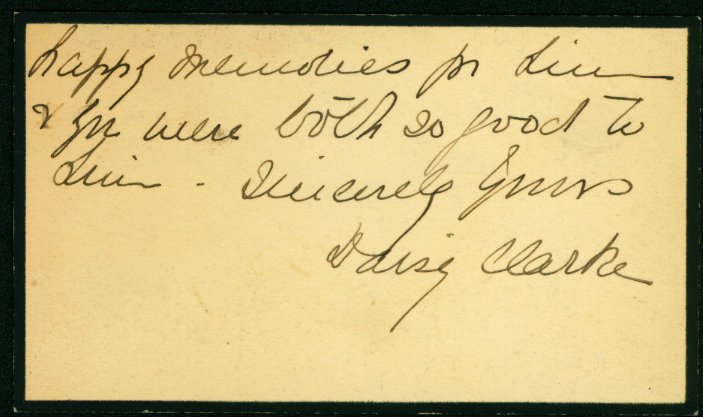 happy memories for him
& you were both so good to
him - Sincerely Yours
Daisy Clarke